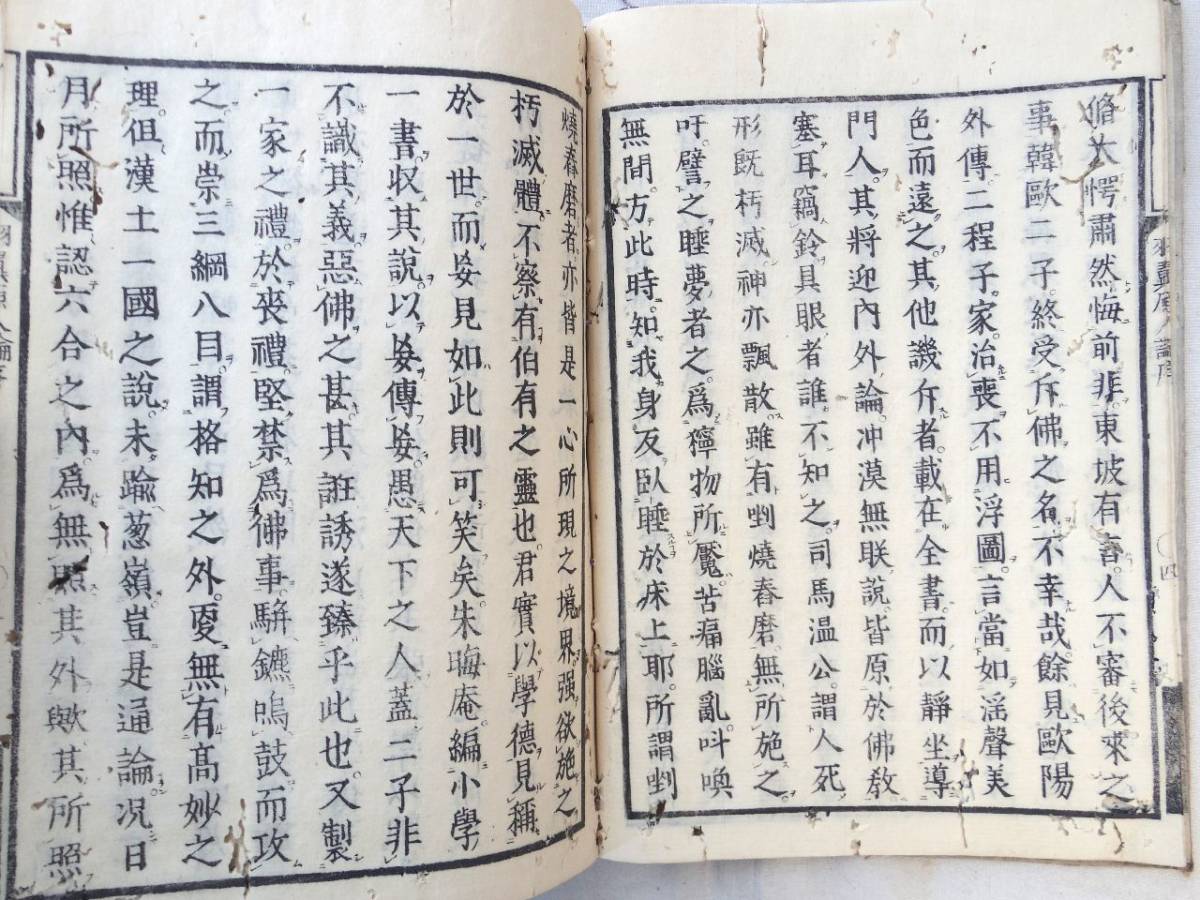 脩大愕肅然悔前非東坡有言人不審後來之
事韓歐二子終受斥佛之名不幸哉餘見歐陽
外傳二程子家治喪不用浮圖言當如淫聲美
色而遠之其他譏斥者載在全書而以靜坐導
門人其將迎內外論冲漠無朕說皆原於佛教
塞耳竊鈴具眼者誰不知之司馬温公謂人死
形旣朽滅神亦飄散雖有剉燒舂磨無所施之
吁譬之睡夢者之爲獰物所魘苦痛腦亂叫喚
無間方此時知我身反臥睡於床上耶所謂剉
燒舂磨者亦皆是一心所現之境界强欲施之
朽滅體不察有伯有之靈也君實以學德見稱
於一世而妄見如此則可笑矣朱晦庵編小學
一書收其說以妄傳妄愚天下之人蓋二子非
不識其義惡佛之甚其誑誘遂臻乎此也又製
一家之禮於喪禮堅禁爲佛事駢鑣鳴鼓而攻
之而崇三綱八目謂格知之外更無有高妙之
理但漢土一國之說未踰葱嶺豈是通論况日
月所照惟認六合之內爲無照其外歟其所照